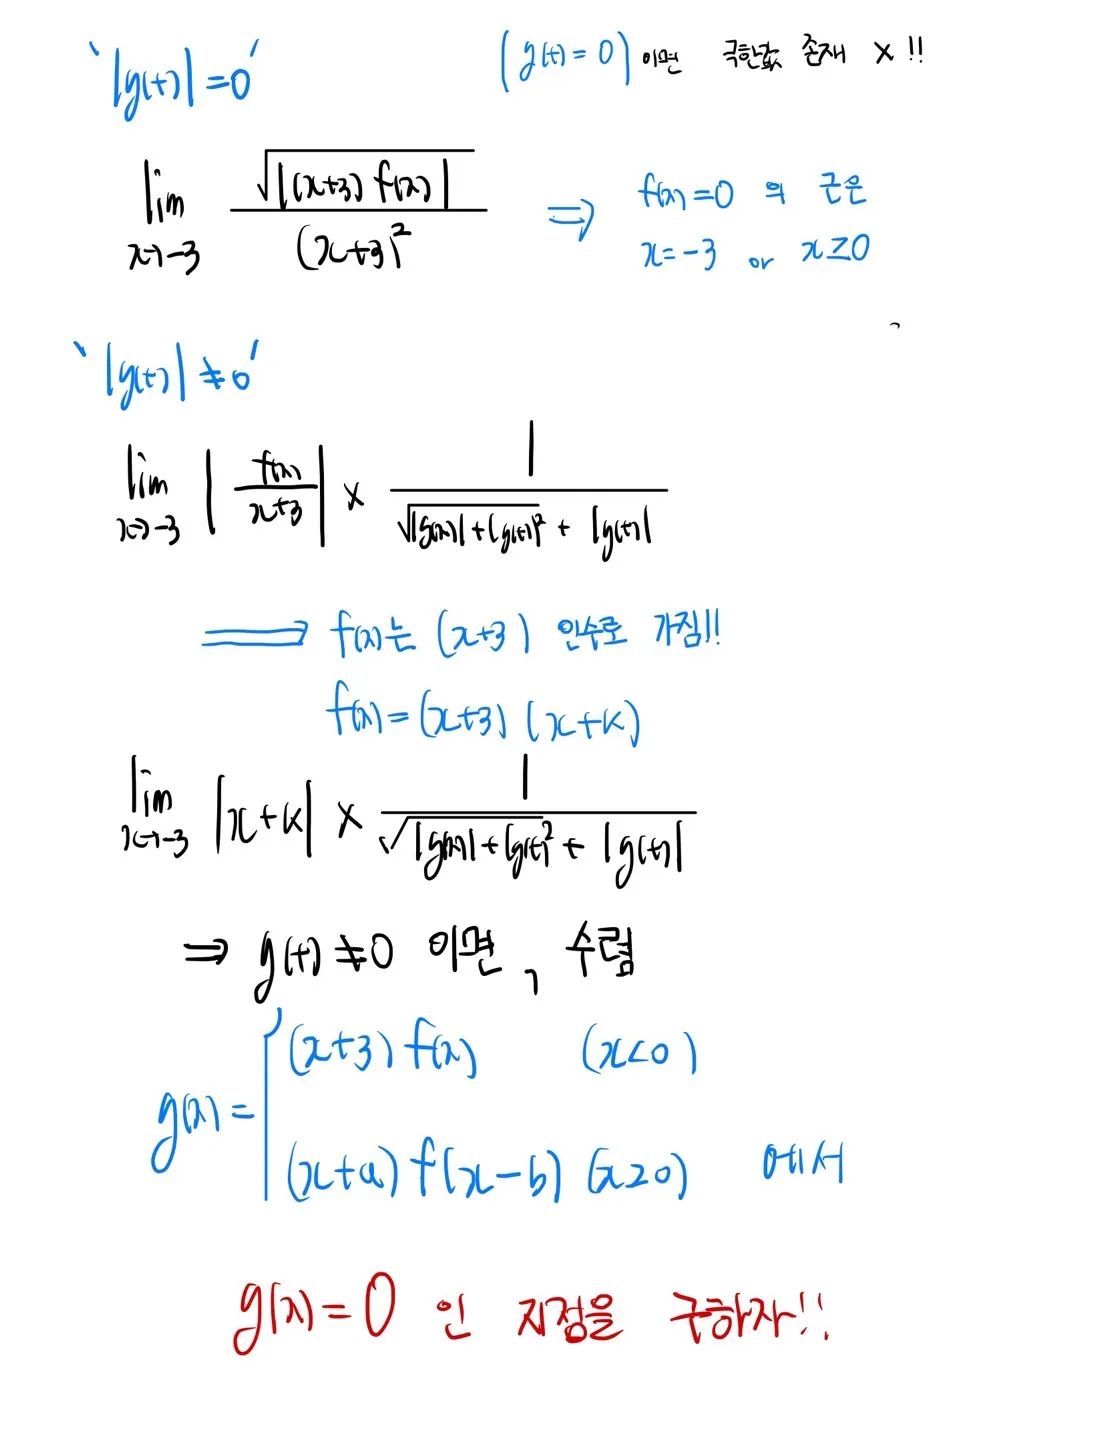 '|g(t)|=0'
(g(t)=0)이면 극한값 존재 X!!
lim x→-3 √|(x+3)f(x)| / (x+3)²
⇒ f(x)=0 의 근은
x=-3 or x≥0
'|g(t)|≠0'
lim x→-3 |f(x)/(x+3)| × 1/(√(|g(x)|+|g(t)|²) + |g(t)|)
⟹ f(x)는 (x+3) 인수로 가짐!!
f(x)=(x+3)(x+k)
lim x→-3 |x+k| × 1/(√(|g(x)|+|g(t)|²) + |g(t)|)
⇒ g(t)≠0 이면, 수렴
g(x)= { (x+3)f(x) (x<0)
(x+a)f(x-b) (x≥0) 에서
g(x)=0 인 지점을 구하자!!